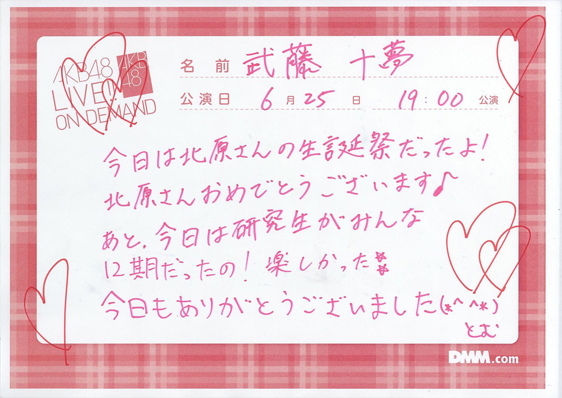 AKB48
LIVE!!
ON DEMAND
AKB
48
名前 武藤 十夢
公演日 6月25日 19:00 公演
今日は北原さんの生誕祭だったよ!
北原さんおめでとうございます♪
あと、今日は研究生がみんな
12期だったの!楽しかった
今日もありがとうございました(*^^*)
とむ
DMM.com